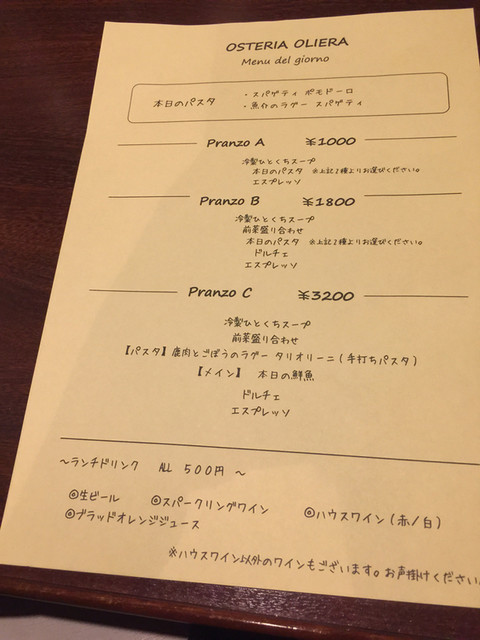 OSTERIA OLIERA
Menu del giorno
本日のパスタ
・スパゲティ ポモドーロ
・魚介のラグー スパゲティ
Pranzo A ¥1000
冷製ひとくちスープ
本日のパスタ ※上記2種よりお選びください。
エスプレッソ
Pranzo B ¥1800
冷製ひとくちスープ
前菜盛り合わせ
本日のパスタ ※上記2種よりお選びください。
ドルチェ
エスプレッソ
Pranzo C ¥3200
冷製ひとくちスープ
前菜盛り合わせ
【パスタ】鹿肉とごぼうのラグー タリオリーニ(手打ちパスタ)
【メイン】 本日の鮮魚
ドルチェ
エスプレッソ
～ランチドリンク ALL 500円 ～
◎生ビール ◎スパークリングワイン ◎ハウスワイン(赤/白)
◎ブラッドオレンジジュース
※ハウスワイン以外のワインもございます。お声掛けください